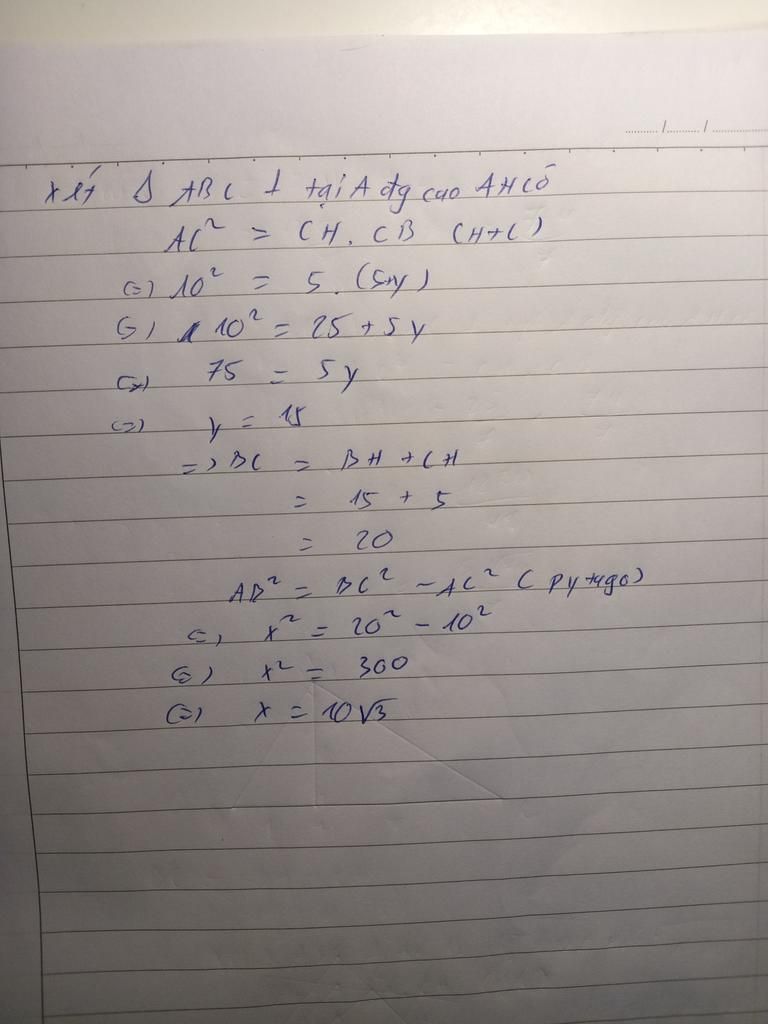 Xét Δ ABC ⊥ tại A đg cao AH có
AC² = CH. CB (HTL)
(=) 10² = 5. (5+y)
(=) 10² = 25 + 5y
(=) 75 = 5y
(=) y = 15
=> BC = BH + CH
= 15 + 5
= 20
AB² = BC² - AC² ( Pytago)
(=) x² = 20² - 10²
(=) x² = 300
(=) x = 10√3